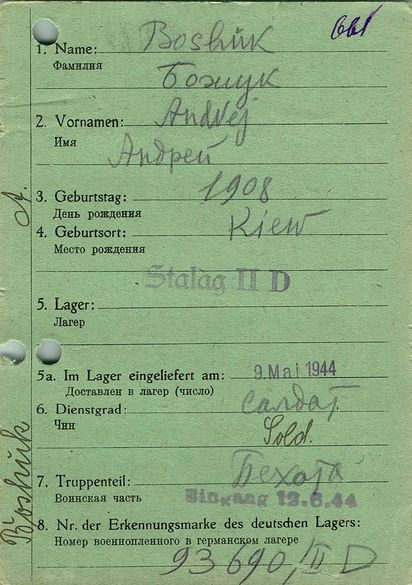 1. Name: Boshuk
Фамилия
Божук
2. Vornamen: Andrej
Имя
Андрей
3. Geburtstag: 1908
День рождения
4. Geburtsort: Kiew
Место рождения
Stalag II D
5. Lager:
Лагер
5a. Im Lager eingeliefert am: 9. Mai 1944
Доставлен в лагер (число)
6. Dienstgrad: салдат
Чин
Sold.
7. Truppenteil: Пехота
Воинская часть
Eingang 12.6.44
8. Nr. der Erkennungsmarke des deutschen Lagers:
Номер военнопленного в германском лагере
93690/II D
A.
Boshuk